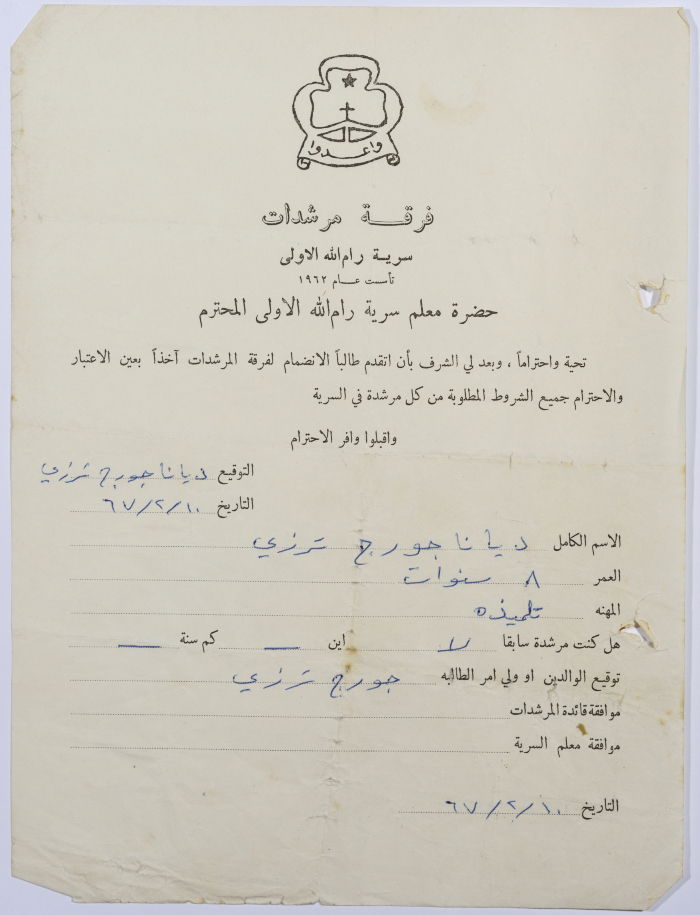 واعدوا
فرقة مرشدات
سرية رام الله الاولى
تأسست عام ١٩٦٢
حضرة معلم سرية رام الله الاولى المحترم
تحية واحتراماً ، وبعد لي الشرف بأن اتقدم طالباً الانضمام لفرقة المرشدات آخذاً بعين الاعتبار
والاحترام جميع الشروط المطلوبة من كل مرشدة في السرية
واقبلوا وافر الاحترام
التوقيع ديانا جورج ترزي
التاريخ ٦٧/٢/١٠
الاسم الكامل ديانا جورج ترزي
العمر ٨ سنوات
المهنه تلميذه
هل كنت مرشدة سابقا لا اين — كم سنة —
توقيع الوالدين او ولي امر الطالبه جورج ترزي
موافقة قائدة المرشدات
موافقة معلم السرية
التاريخ ٦٧/٢/١٠